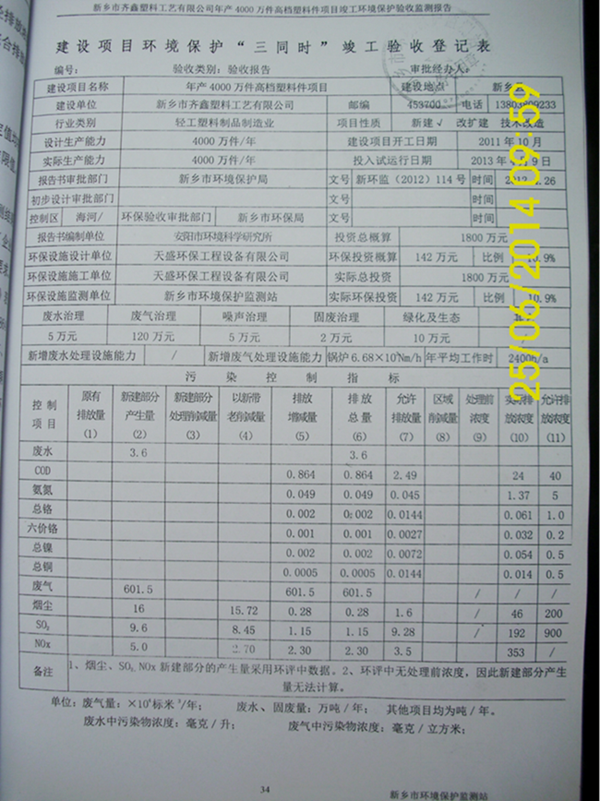 新乡市齐鑫塑料工艺有限公司年产4000万件高档塑料件项目竣工环境保护验收监测报告
建设项目环境保护“三同时”竣工验收登记表
编号： 验收类别：验收报告 审批经办人：
建设项目名称 年产4000万件高档塑料件项目 建设地点 新乡
建设单位 新乡市齐鑫塑料工艺有限公司 邮编 453700 电话
行业类别 轻工塑料制品制造业 项目性质 新建√ 改扩建 技术改造
设计生产能力 4000万件/年 建设项目开工日期 2011年10月
实际生产能力 4000万件/年 投入试运行日期 2013年
报告书审批部门 新乡市环境保护局 文号 新环监（2012）114号 时间
初步设计审批部门 文号 时间
控制区 海河/ 环保验收审批部门 新乡市环保局 文号 时间
报告书编制单位 安阳市环境科学研究所 投资总概算 1800万元
环保设施设计单位 天盛环保工程设备有限公司 环保投资概算 142万元 比例
环保设施施工单位 天盛环保工程设备有限公司 实际总投资 1800万元
环保设施监测单位 新乡市环境保护监测站 实际环保投资 142万元 比例
废水治理 废气治理 噪声治理 固废治理 绿化及生态
5万元 120万元 5万元 2万元 10万元
新增废水处理设施能力 / 新增废气处理设施能力 锅炉6.68×10⁶Nm/h 年平均工作时 2400h/a
污染控制指标
控制项目 原有排放量（1） 新建部分产生量（2） 新建部分处理削减量（3） 以新带老削减量（4） 排放增减量（5） 排放总量（6） 允许排放量（7） 区域削减量（8） 处理前浓度（9） 实际排放浓度（10） 允许排放浓度（11）
废水 3.6 3.6
COD 0.864 0.864 2.49 24 40
氨氮 0.049 0.049 0.045 1.37 5
总铬 0.002 0.002 0.0144 0.061 1.0
六价铬 0.001 0.001 0.0027 0.032 0.2
总镍 0.002 0.002 0.0072 0.054 0.5
总铜 0.0005 0.0005 0.0144 0.014 0.5
废气 601.5 601.5 601.5 / / /
烟尘 16 15.72 0.28 0.28 1.6 / 46 200
SO₂ 9.6 8.45 1.15 1.15 9.28 / 192 900
NOx 5.0 2.70 2.30 2.30 3.5 353 /
备注 1、烟尘、SO₂、NOx新建部分的产生量采用环评中数据。2、环评中无处理前浓度，因此新建部分产生
量无法计算。
单位：废气量：×10⁴标米³/年； 废水、固废量：万吨/年； 其他项目均为吨/年。
废水中污染物浓度：毫克/升； 废气中污染物浓度：毫克/立方米；
34
新乡市环境保护监测站
25/06/2014 09:59